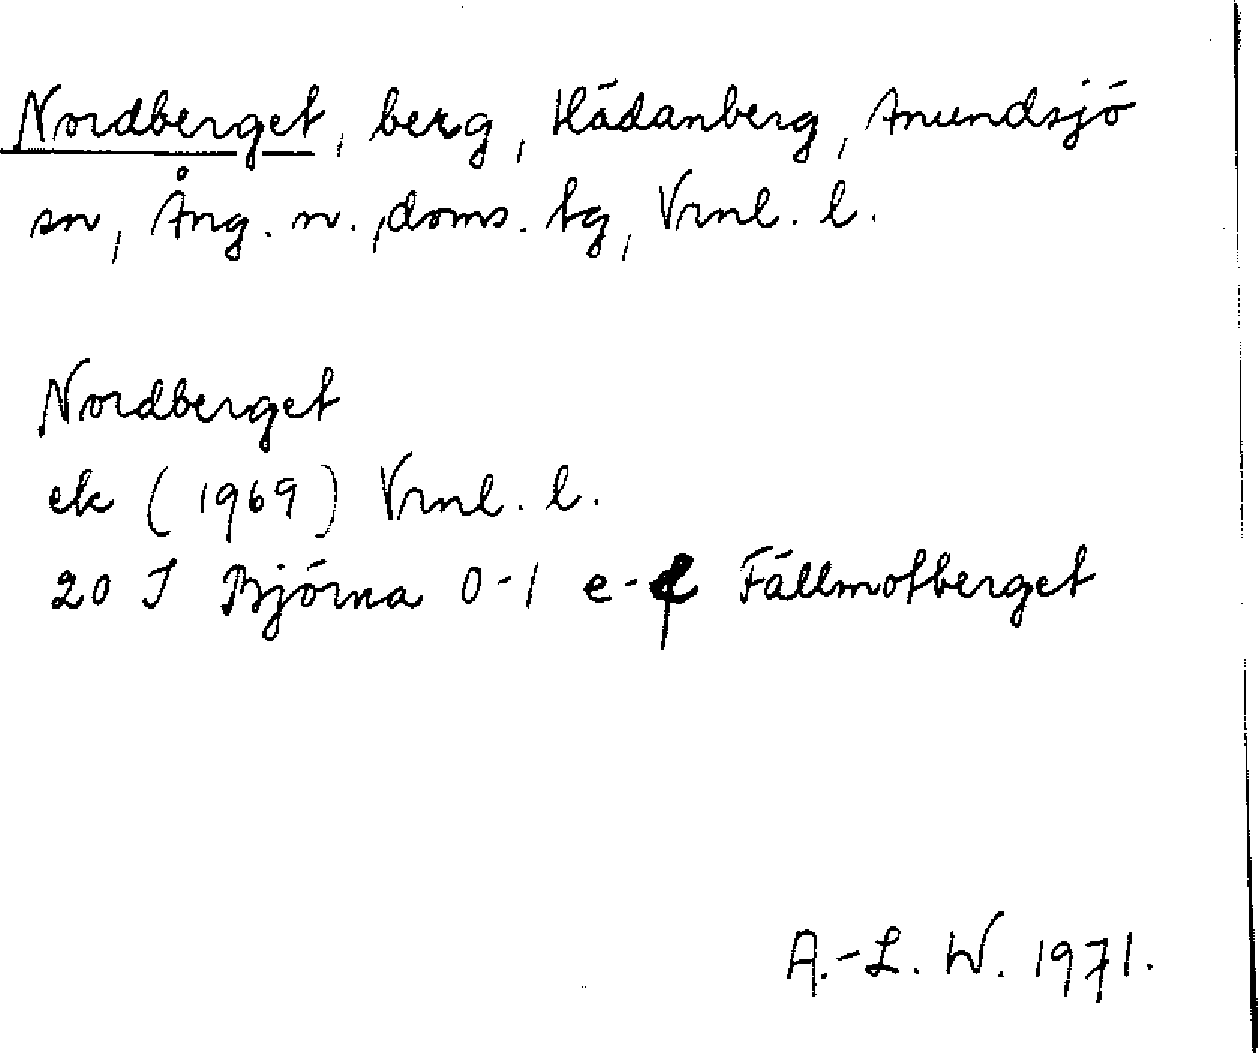 Nordberget, berg, Hädanberg, Anundsjö
sn, Ång. n., doms. tg, Vrnl. l.
Nordberget
ek (1969) Vrnl. l.
20 J Björna 0-1 e-f Fällmotberget
A.-L. W. 1971.